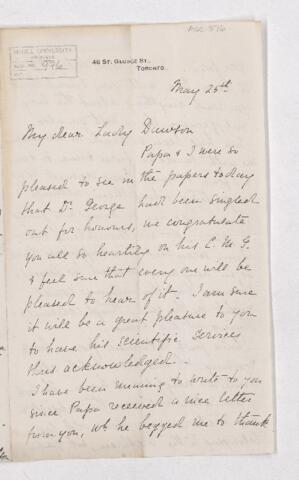 McGILL UNIVERSITY
ARCHIVES
ACC. NO. 976
REF.
46 ST. GEORGE ST.,
TORONTO.
May 25th
My dear Lady Dawson
Papa & I were so
pleased to see in the papers today
that Dr. George had been singled
out for honours, we congratulate
you all so heartily on his C. M. G.
& feel sure that every one will be
pleased to hear of it. I am sure
it will be a great pleasure to you
to have his scientific services
thus acknowledged.
I have been meaning to write to you
since Papa received a nice letter
from you, wh he begged me to thank